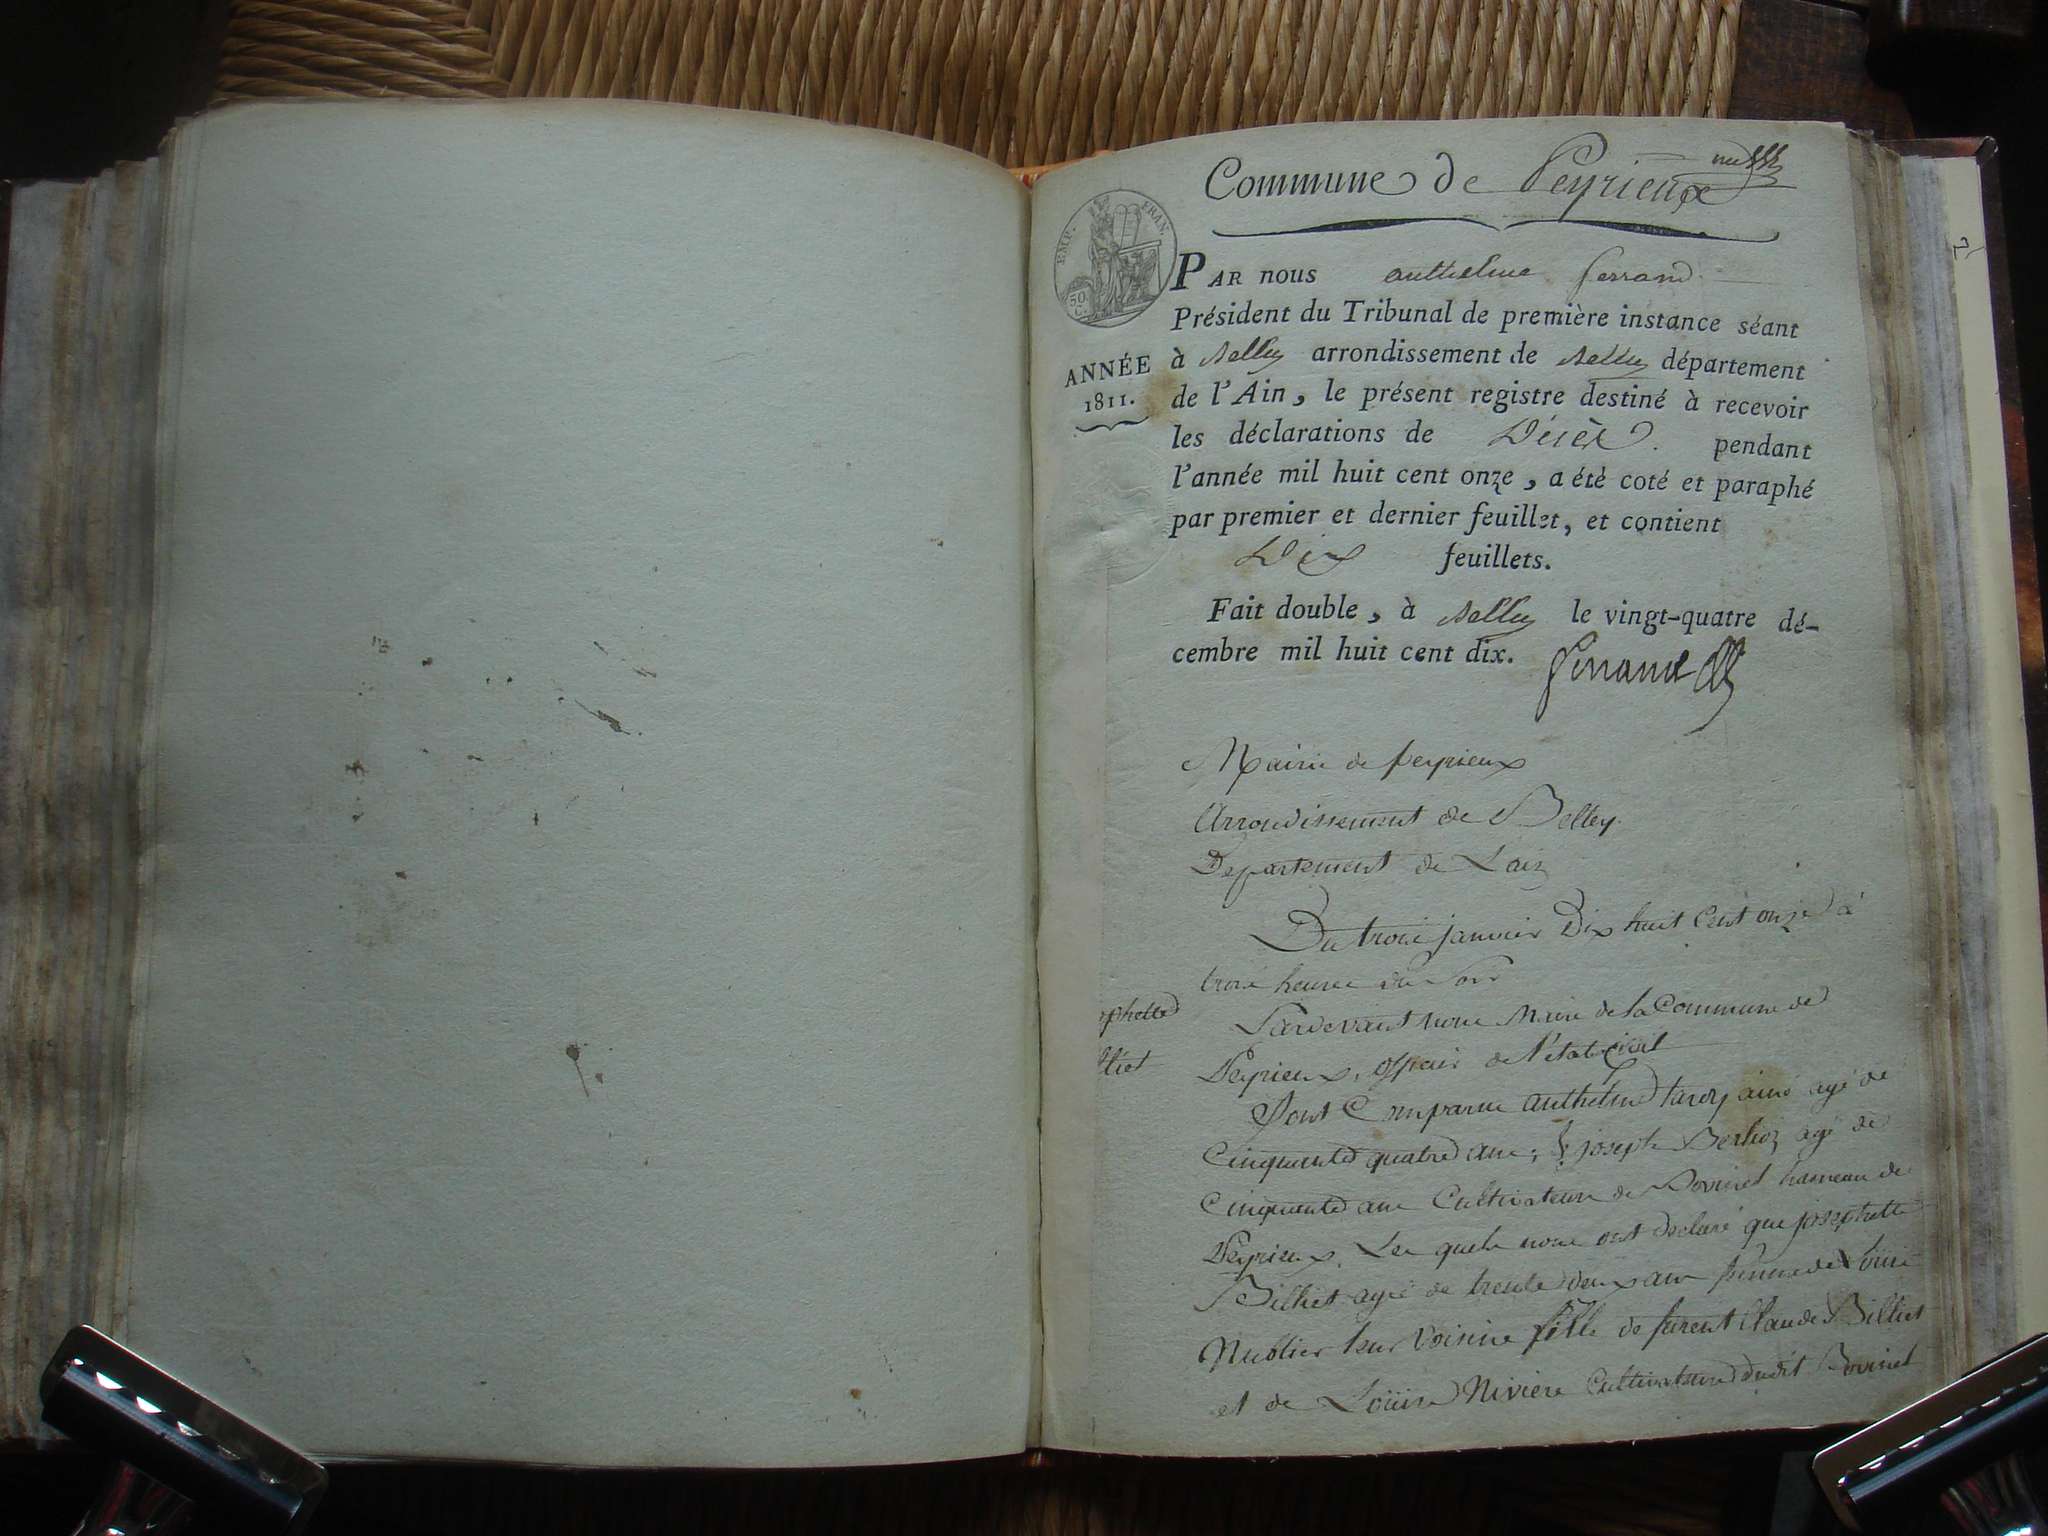 Commune de Peyrieux
EMP. FRAN.
50
C.
PAR nous anthelme ferrand
Président du Tribunal de première instance séant
ANNÉE
1811.
à Belley arrondissement de Belley département
de l'Ain, le présent registre destiné à recevoir
les déclarations de Décès. pendant
l'année mil huit cent onze, a étè coté et paraphé
par premier et dernier feuillet, et contient
Dix feuillets.
Fait double, à Belley le vingt-quatre dé-
cembre mil huit cent dix. ferrand
Mairie de peyrieux
Arrondissement de Belley.
Departement de Lain
Du trois janvier Dix huit Cent onze à
trois heures du Soir
Pardevant nous Maire de la Commune de
Peyrieux, officier de l'état civil
phette
lliet
Sont Comparus anthelme tardy ainé agé de
Cinquante quatre ans, & joseph Berlioz agé de
Cinquante ans Cultivateurs de Bovinel hameau de
Peyrieux, Les quels nous ont declaré que josephette
Billiet agée de trente deux ans femme de Louis
Nublier leur voisine fille de furent Claude Billiet
et de Loüise Niviere Cultivateurs dudit Bovinel